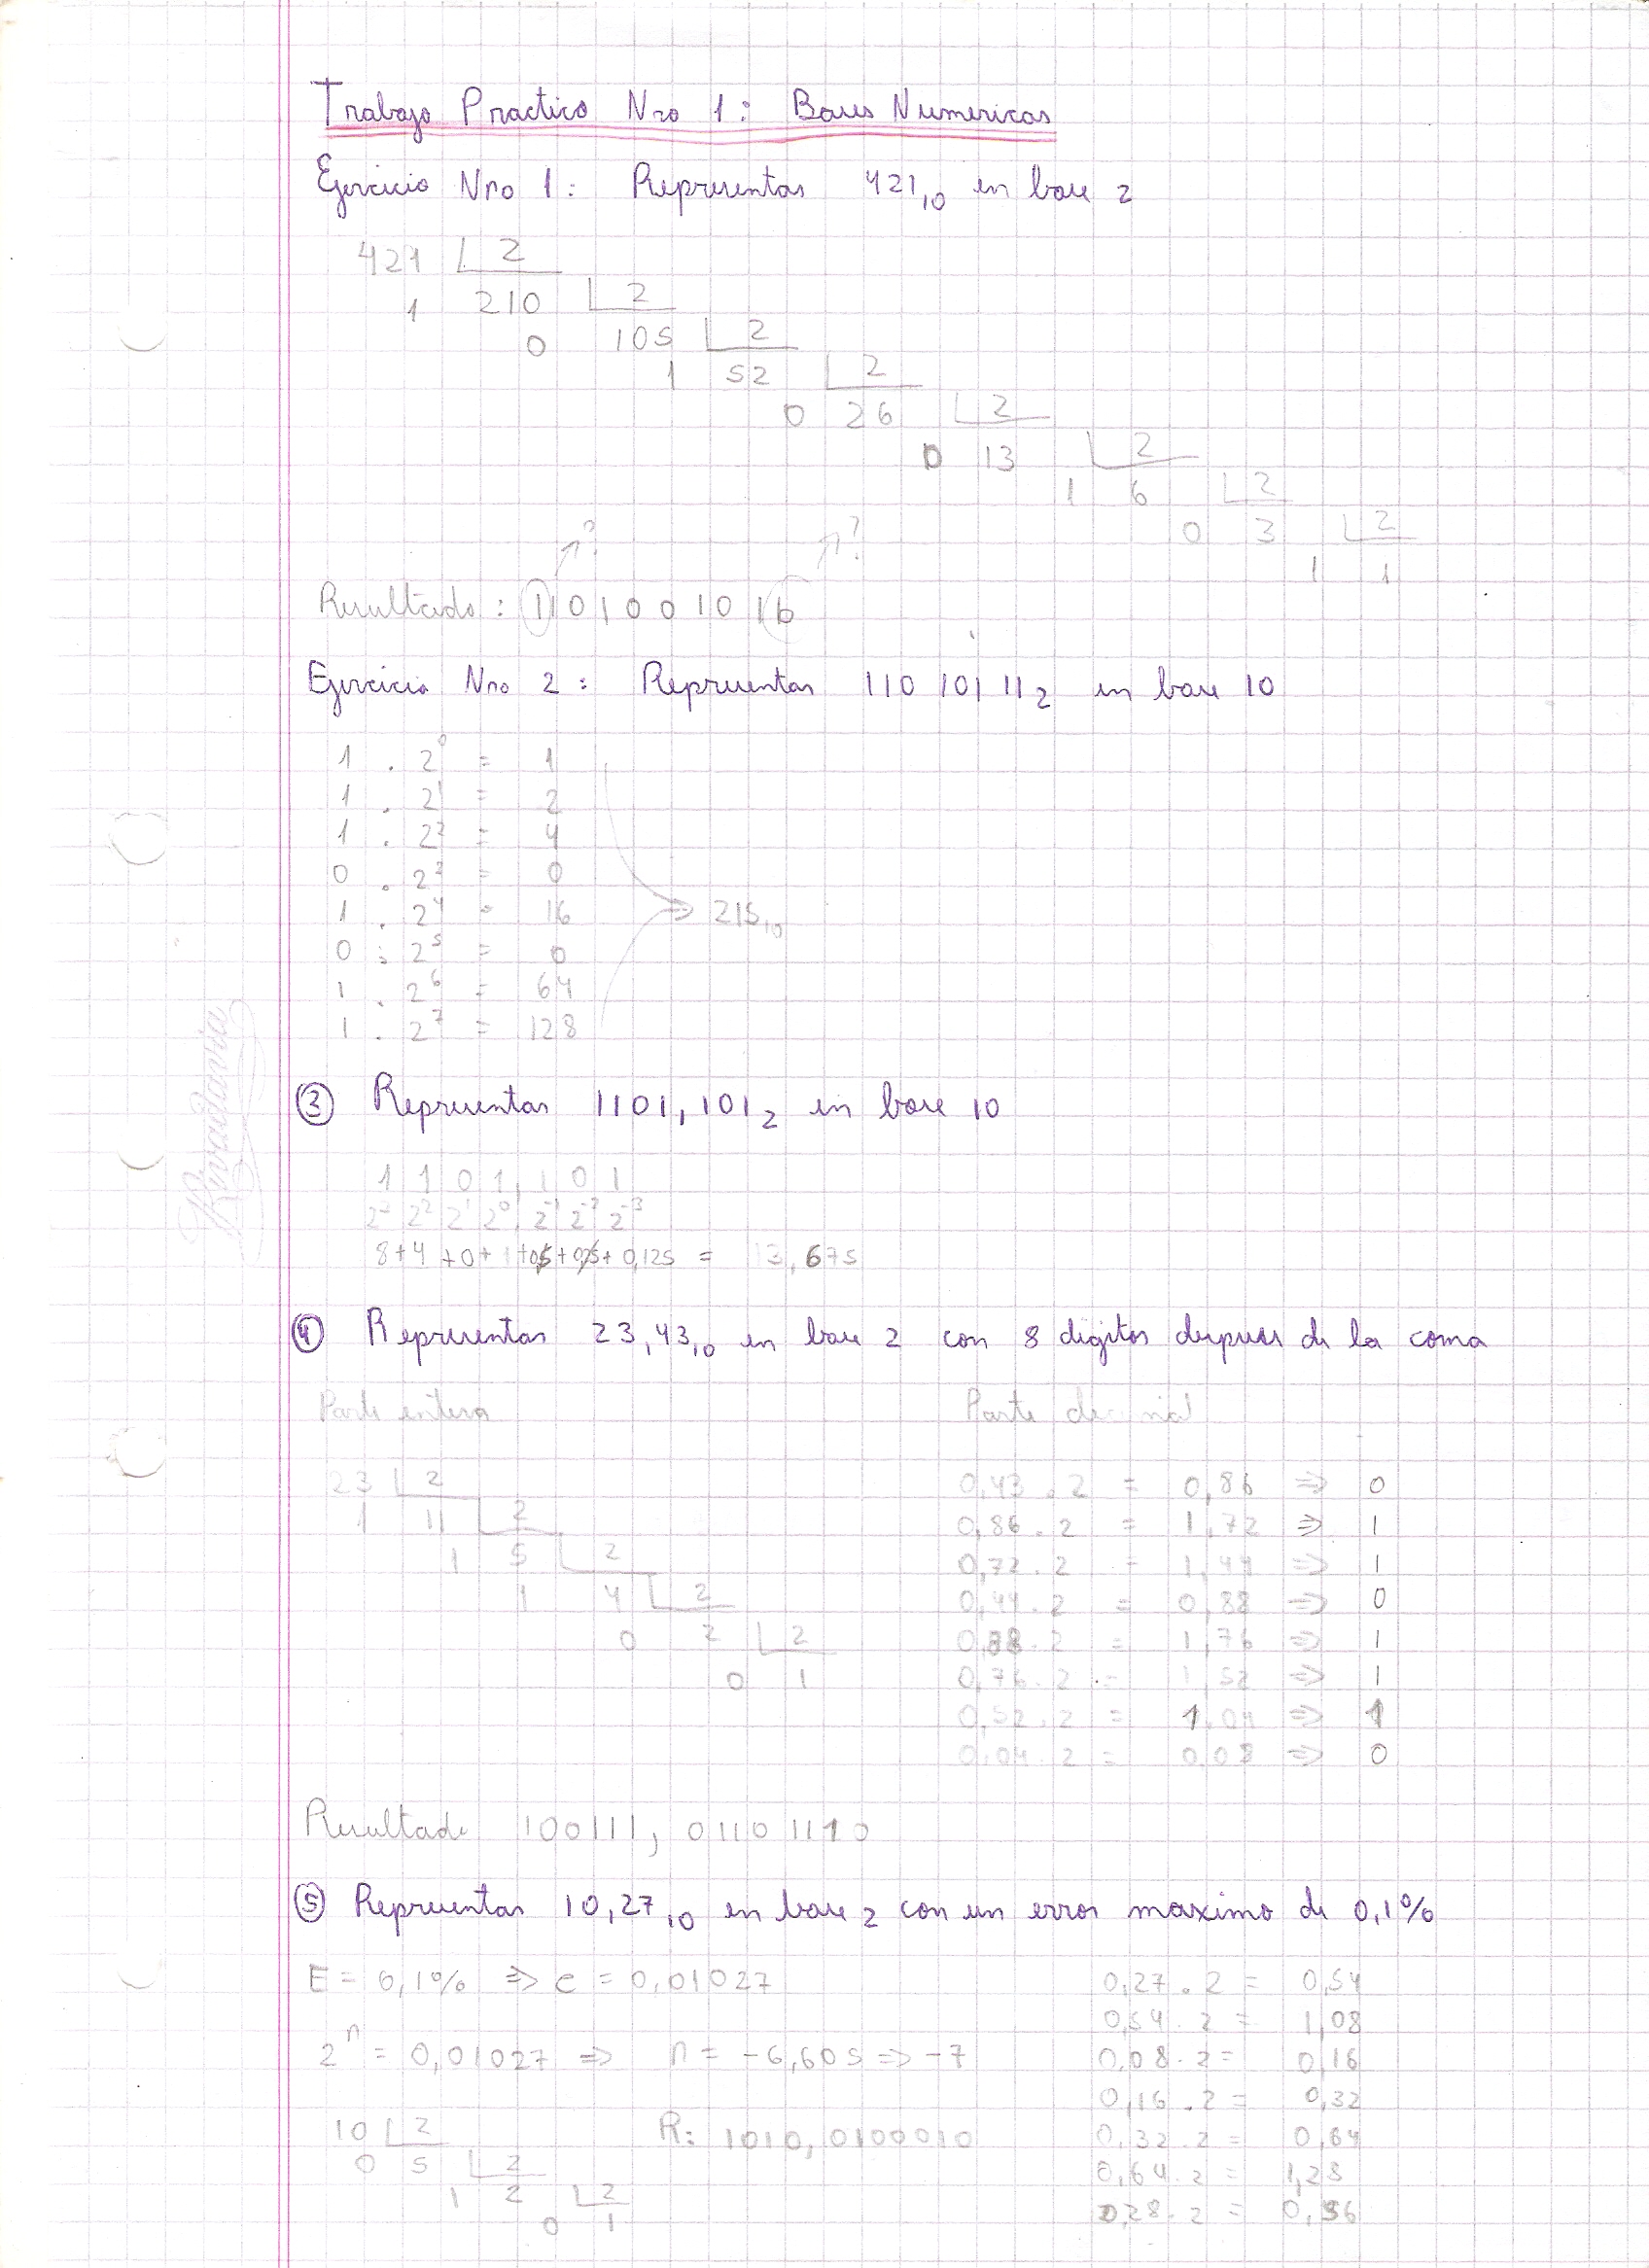 Trabajo Practico Nro 1: Bases Numericas
Ejercicio Nro 1: Representar 421₁₀ en base 2
421 2
1 210 2
0 105 2
1 52 2
0 26 2
0 13 2
1 6 2
0 3 2
1 1
? ?
Resultado: 1101001016
Ejercicio Nro 2: Representar 110 101 11₂ en base 10
1 . 2⁰ = 1
1 . 2¹ = 2
1 . 2² = 4
0 . 2³ = 0
1 . 2⁴ = 16
⇒ 215₁₀
0 . 2⁵ = 0
1 . 2⁶ = 64
1 . 2⁷ = 128
Rivadavia
3 Representar 1101,101₂ en base 10
1 1 0 1, 1 0 1
2³ 2² 2¹ 2⁰, 2⁻¹ 2⁻² 2⁻³
8+4+0+1+0,5+ + 0,125 = 13,675
4 Representar 23,43₁₀ en base 2 con 8 digitos despues de la coma
Parte entera Parte decimal
23 2 0,43 . 2 = 0,86 ⇒ 0
1 11 2 0,86 . 2 = 1,72 ⇒ 1
1 5 2 0,72 . 2 = 1,44 ⇒ 1
1 4 2 0,44 . 2 = 0,88 ⇒ 0
0 2 2 0,88 . 2 = 1,76 ⇒ 1
0 1 0,76 . 2 = 1,52 ⇒ 1
0,52 . 2 = 1,04 ⇒ 1
0,04 . 2 = 0,08 ⇒ 0
Resultado 100111, 01101110
5 Representar 10,27₁₀ en base 2 con un error maximo de 0,1%
E = 0,1% ⇒ e = 0,01027 0,27 . 2 = 0,54
0,54 . 2 = 1,08
2ⁿ = 0,01027 ⇒ n = -6,605 ⇒ -7 0,08 . 2 = 0,16
0,16 . 2 = 0,32
10 2 R: 1010,0100010 0,32 . 2 = 0,64
0 5 2 0,64 . 2 = 1,28
1 2 2 0,28 . 2 = 0,56
0 1